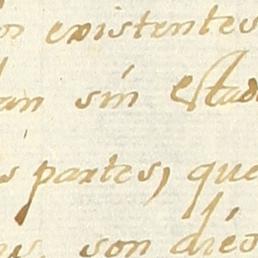 existentes
an sín estad
s partes, que
son diés